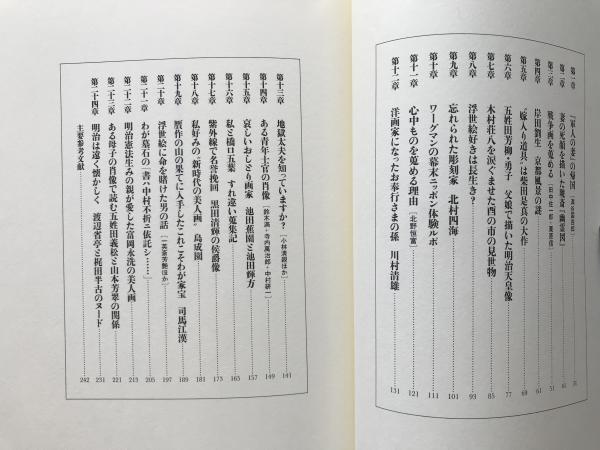 第一章 「賢人の衣」の帰国
第二章 妻の死顔を描いた暁斎「幽霊図」
第三章 戦争画を蒐める 61
第四章 岸田劉生 京都風景の謎 61
第五章 “嫁入り道具”は柴田是真の大作 69
第六章 五姓田芳柳・勇子 父娘で描いた明治天皇像 77
第七章 木村荘八を涙ぐませた酉の市の見世物 85
第八章 浮世絵好きは長生き? 93
第九章 忘れられた彫刻家 北村四海 101
第十章 ワーグマンの幕末ニッポン体験ルポ 111
第十一章 心中ものを蒐める理由 [北野恒富] 121
第十二章 洋画家になったお奉行さまの孫 川村清雄 131
第十三章 地獄太夫を知っていますか? [小林清親ほか] 141
第十四章 ある青年士官の肖像 [鈴木満・寺内萬治郎・中村研一] 149
第十五章 哀しいおしどり画家 池田蕉園と池田輝方 157
第十六章 私と橋口五葉 すれ違い蒐集記 165
第十七章 紫外線で名誉挽回 黒田清輝の侯爵像 173
第十八章 私好みの〈新時代の美人画〉 島成園 181
第十九章 贋作の山の果てに入手したこれこそわが家宝 司馬江漢 189
第二十章 浮世絵に命を賭けた男の話 [二美苓芳艶ほか] 197
第二十一章 わが墓石の「書ハ中村不折ニ依託シ……」 205
第二十二章 明治憲法生みの親が愛した富岡永洗の美人画 213
第二十三章 ある母子の肖像で読む五姓田義松と山本芳翠の関係 221
第二十四章 明治は遠く懐かしく 渡辺省亭と梶田半古のヌード 231
主要参考文献 242